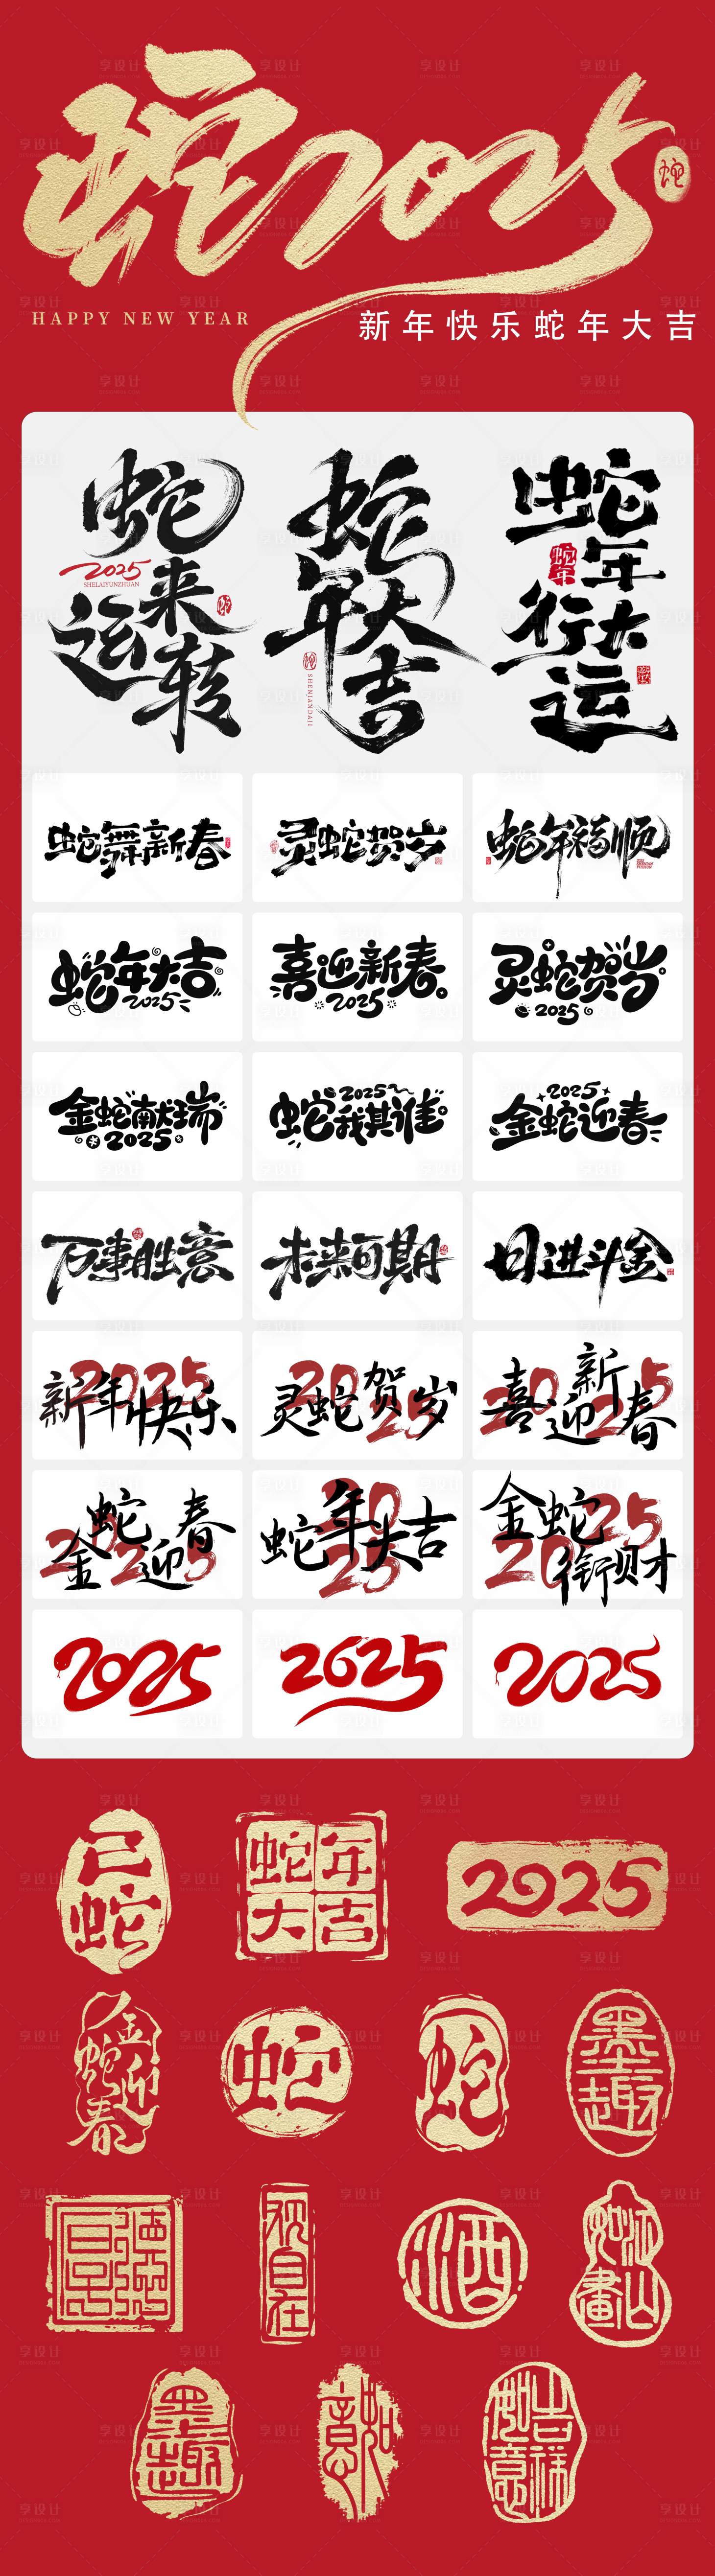 蛇2025
蛇
HAPPY NEW YEAR
新年快乐蛇年大吉
蛇来运转
2025
SHELAIYUNZHUAN
蛇年大吉
SHENIANDAJI
蛇年行大运
蛇年
蛇舞新春
灵蛇贺岁
蛇年福顺
蛇年大吉
2025
喜迎新春
2025
灵蛇贺岁
2025
金蛇献瑞
2025
2025
蛇我其谁
2025
金蛇迎春
万事胜意
未来可期
日进斗金
2025
新年快乐
2025
灵蛇贺岁
2025
喜迎新春
2025
金蛇迎春
2025
蛇年大吉
2025
金蛇衔财
2025
2025
2025
己蛇
蛇年大吉
2025
金蛇迎春
蛇
蛇
墨趣
观自在
酒
江山如画
墨趣
如意
吉祥如意
享设计